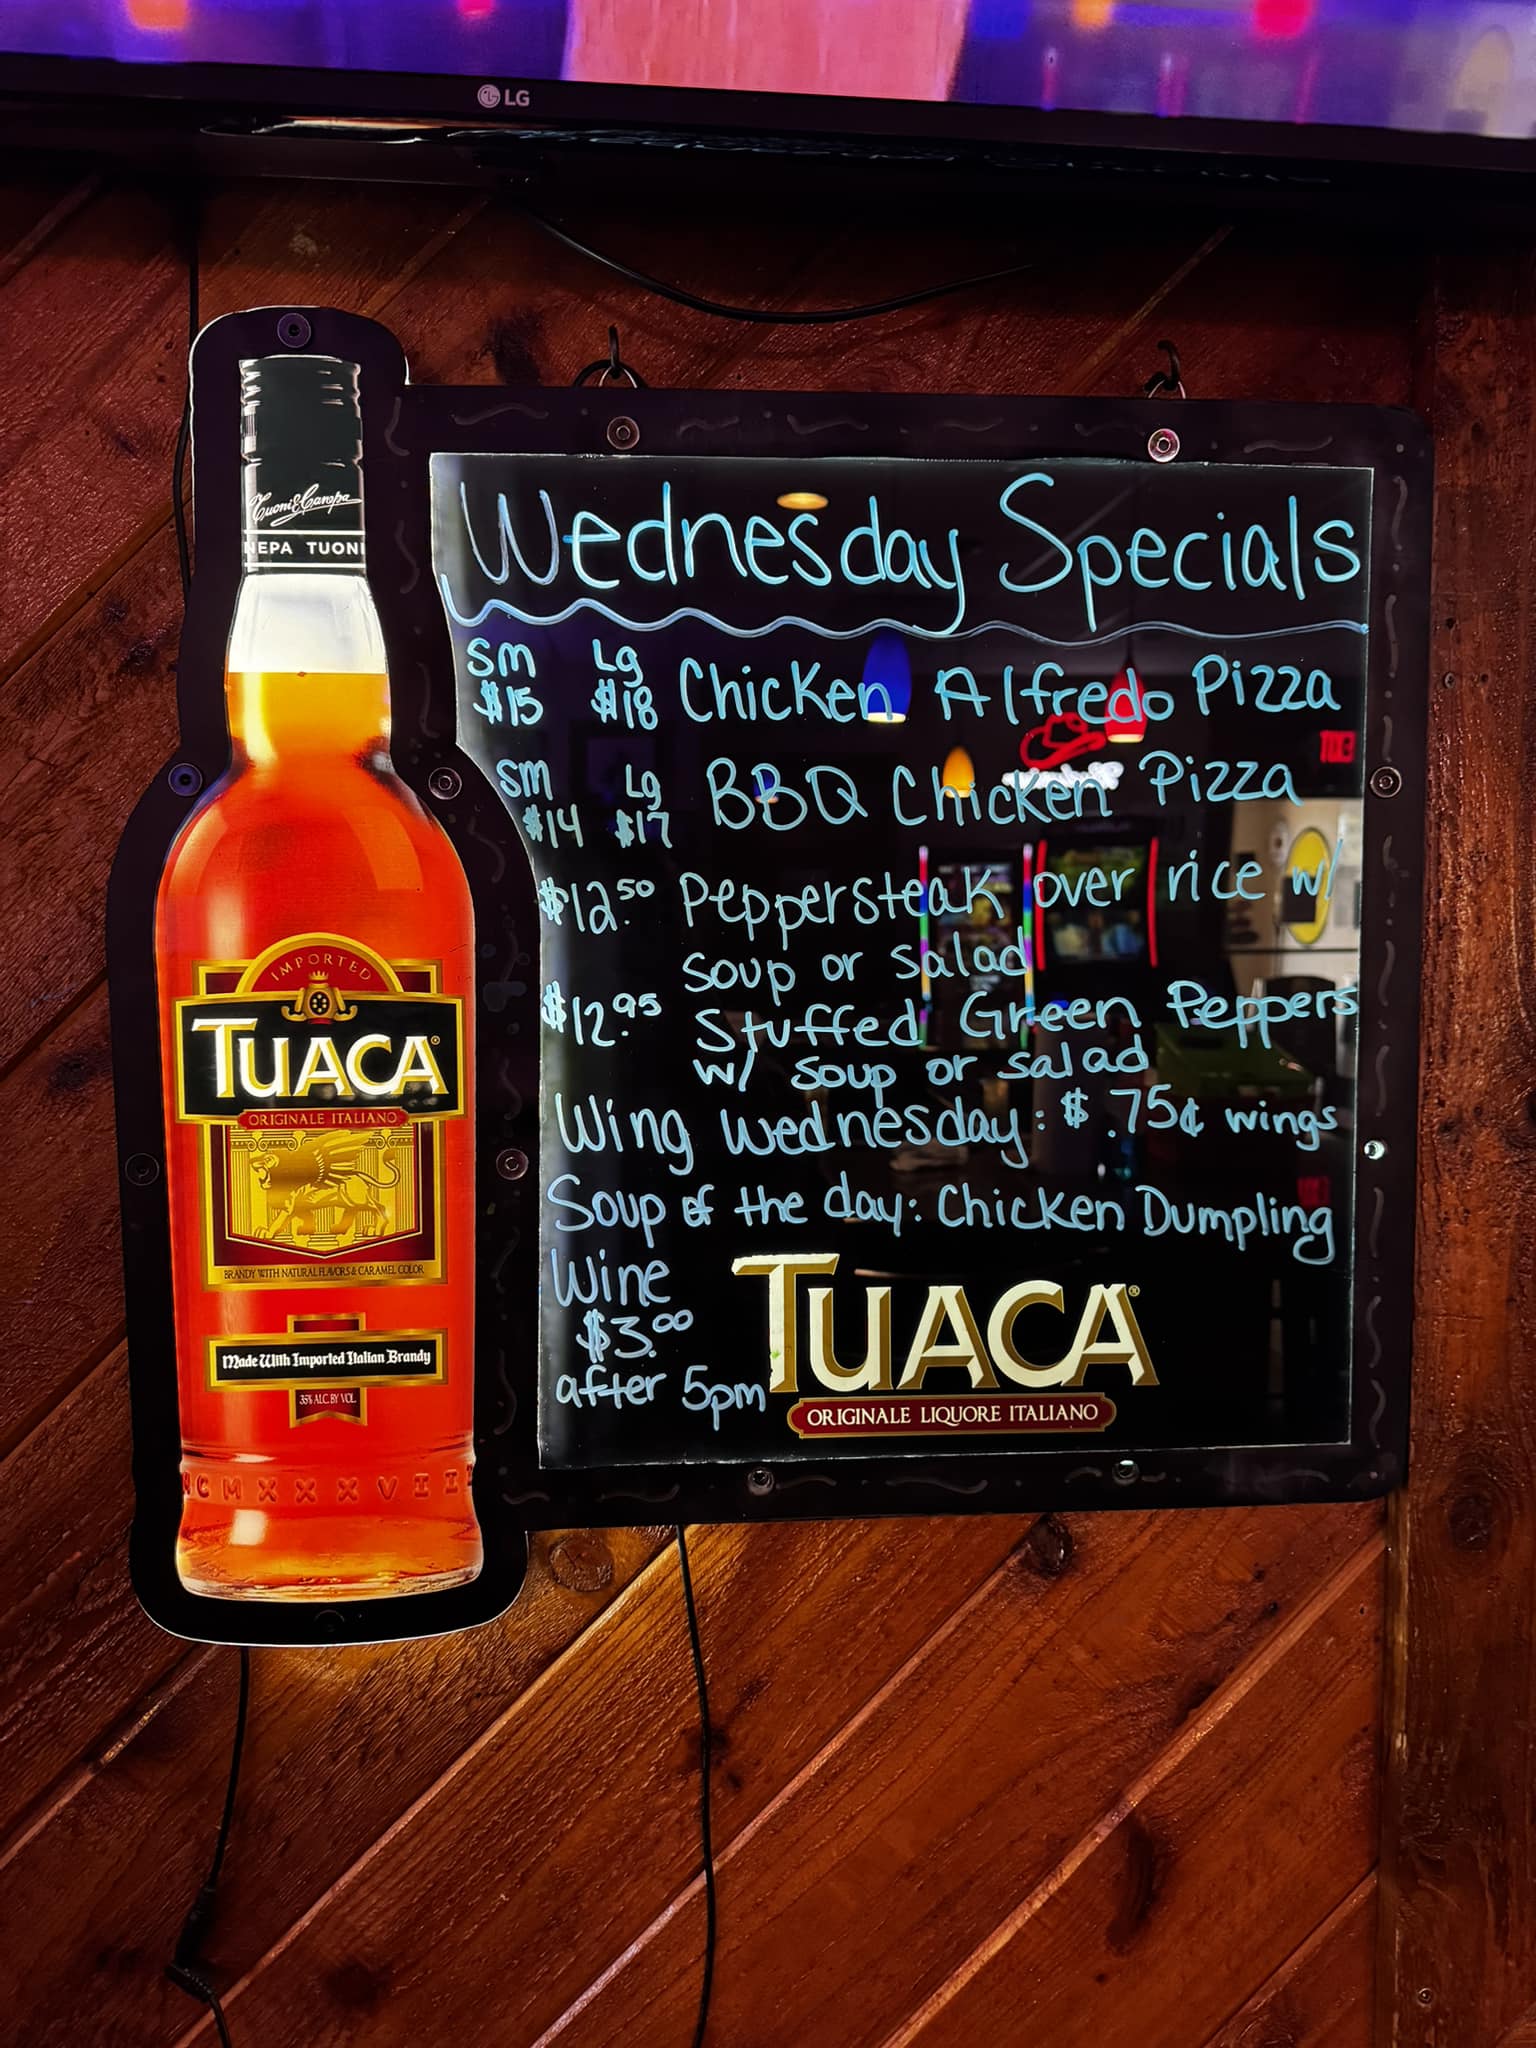 LG
Tuoni&Canepa
NEPA TUONI
IMPORTED
TUACA®
ORIGINALE ITALIANO
BRANDY WITH NATURAL FLAVORS & CARAMEL COLOR
Made With Imported Italian Brandy
35% ALC. BY VOL.
MCMXXXVIII
Wednesday Specials
Sm Lg Chicken Alfredo Pizza
$15 $18
Sm Lg BBQ Chicken Pizza
$14 $17
$12.50 Peppersteak over rice w/
soup or salad
$12.95 Stuffed Green Peppers
w/ soup or salad
Wing Wednesday: $.75¢ wings
Soup of the day: Chicken Dumpling
Wine
$3.00
after 5pm
TUACA®
ORIGINALE LIQUORE ITALIANO